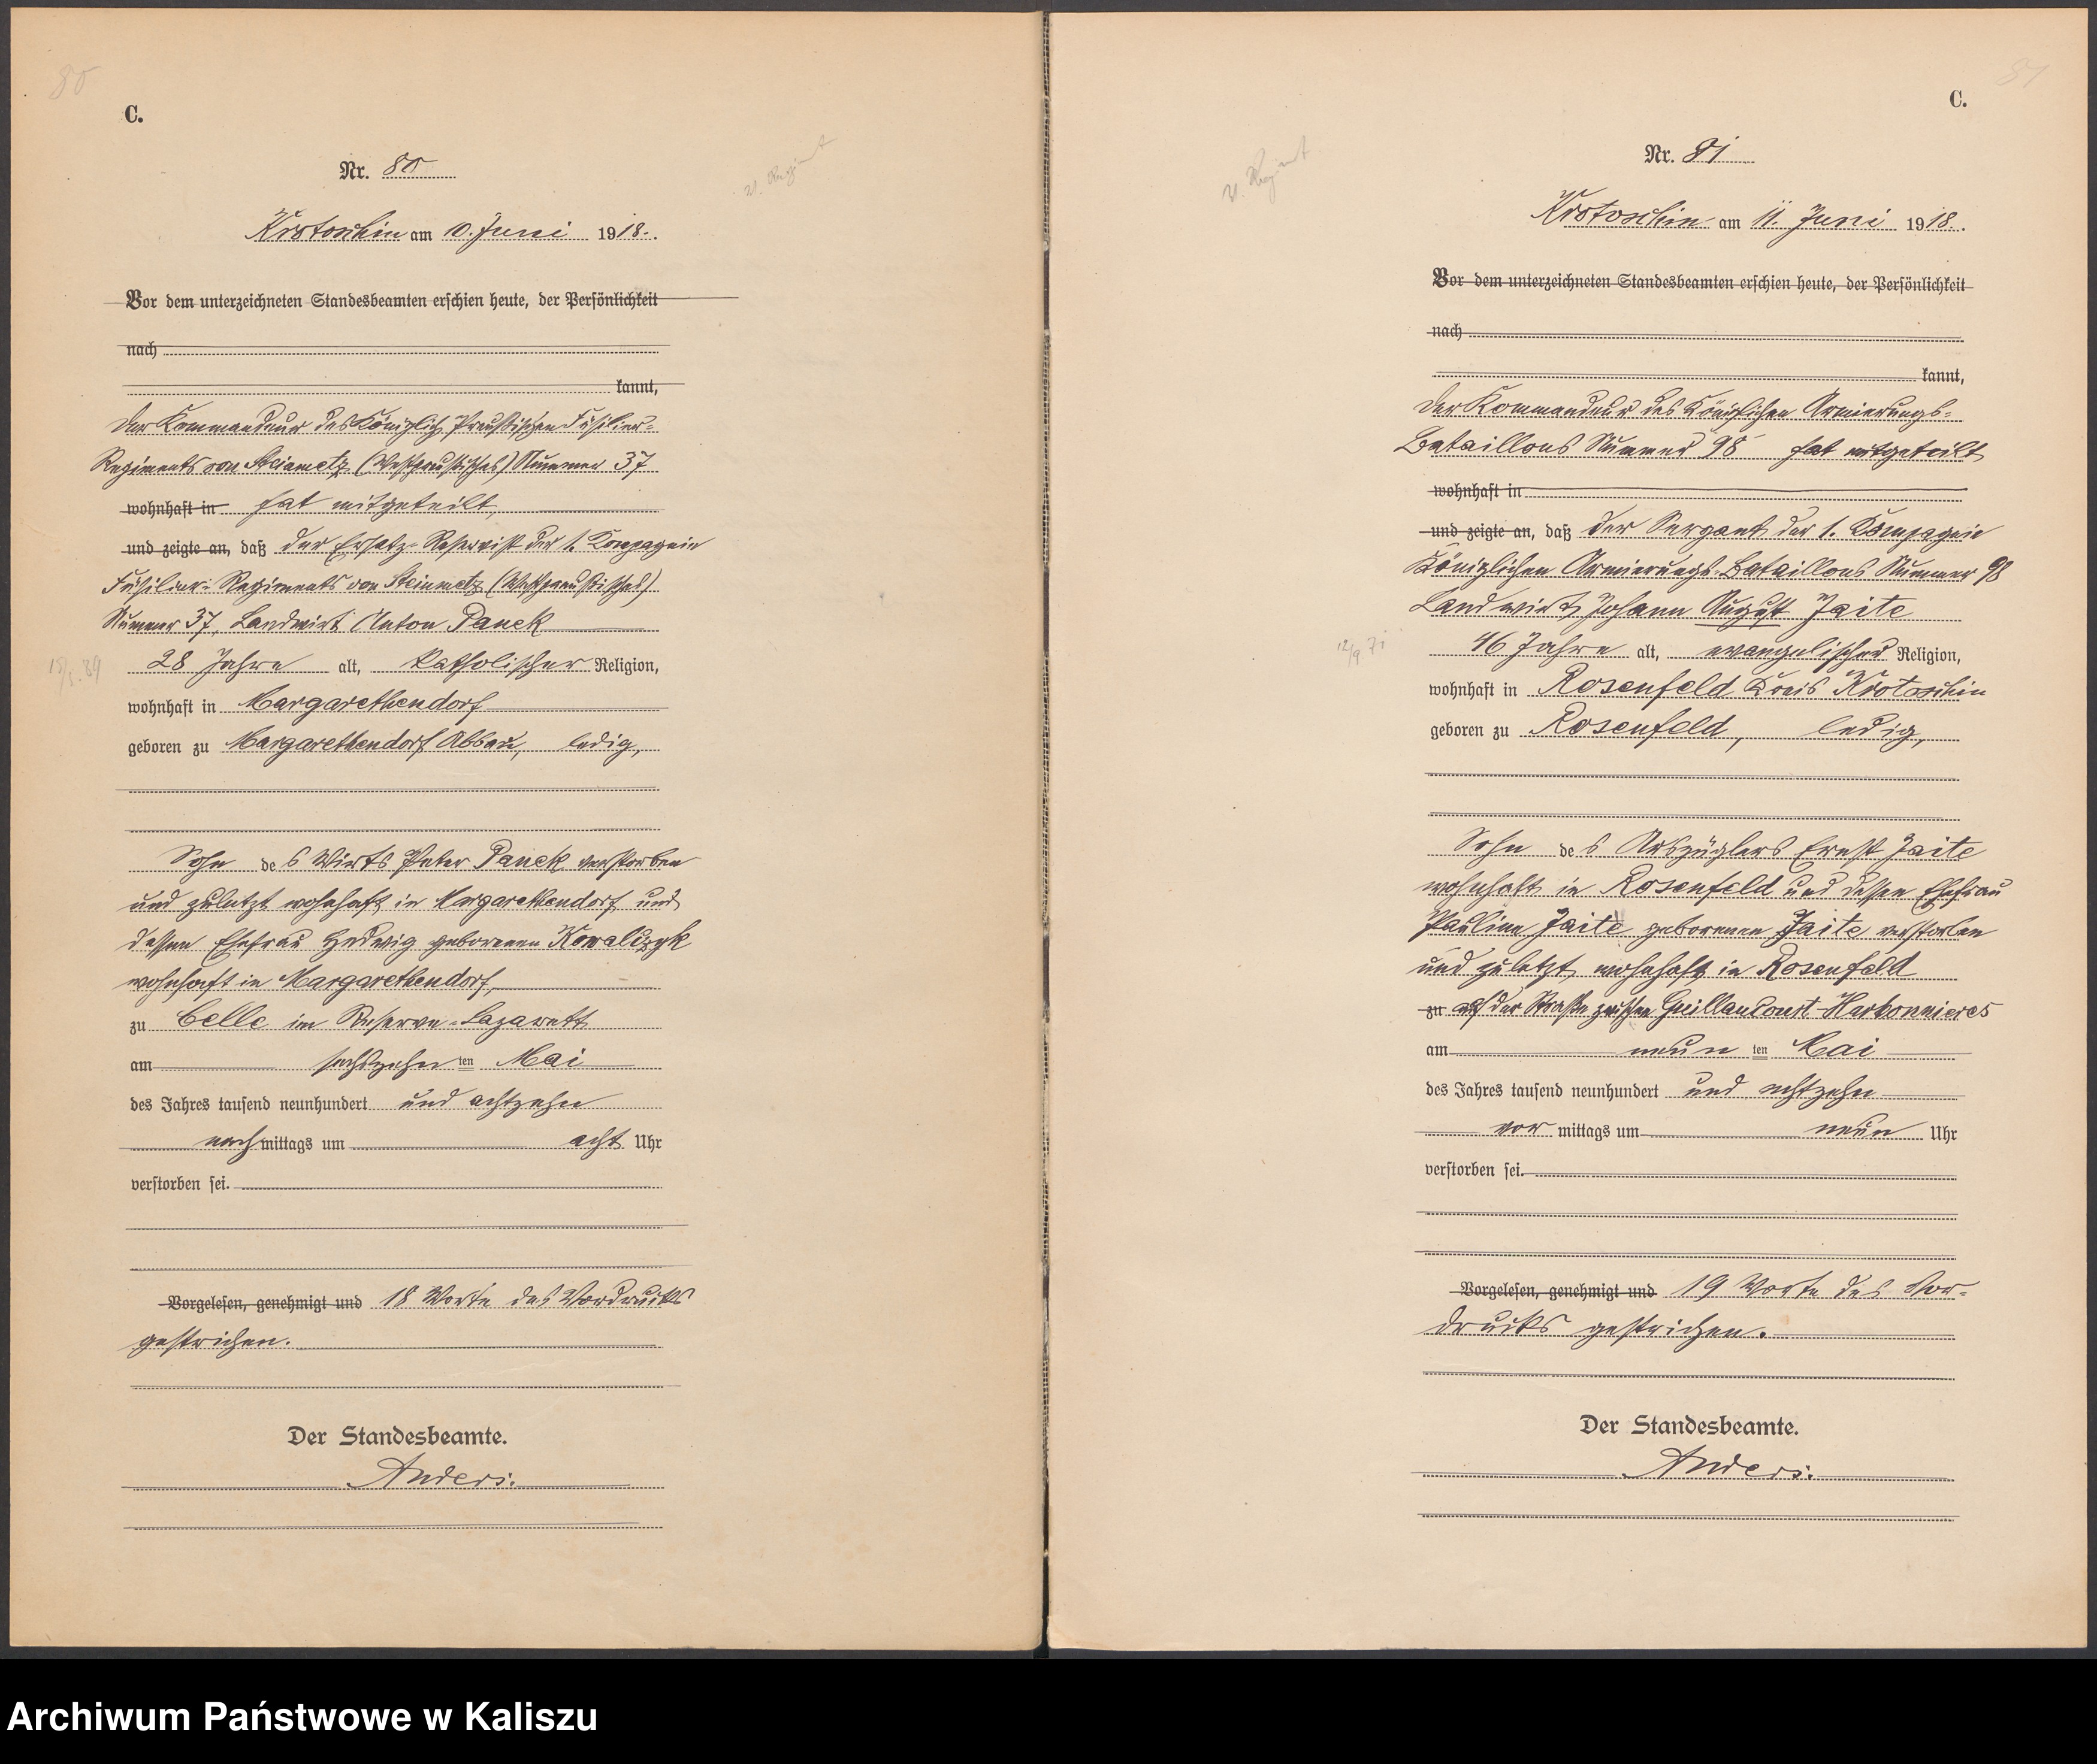 80
C.
Nr. 80
v. Regimt
Krotoschin am 10. Juni 1918.
Vor dem unterzeichneten Standesbeamten erschien heute, der Persönlichkeit
nach
kannt,
Der Kommandeur des Königlich Preußischen Füsilier-
Regiments von Steinmetz (Westpreußisches) Nummer 37
wohnhaft in hat mitgeteilt,
und zeigte an, daß der Ersatz-Reservist der 1. Kompagnie
Füsilier-Regiments von Steinmetz (Westpreußisches)
Nummer 37, Landwirt Anton Panek
28 Jahre alt, katholischer Religion,
wohnhaft in Margarethendorf
geboren zu Margarethendorf Abbau, ledig,
Sohn des Wirts Peter Panek verstorben
und zuletzt wohnhaft in Margarethendorf und
dessen Ehefrau Hedwig geborenen Kowalczyk
wohnhaft in Margarethendorf,
zu Celle im Reserve-Lazarett
am sechszehn ten Mai
des Jahres tausend neunhundert und achtzehn
nachmittags um acht Uhr
verstorben sei.
Vorgelesen, genehmigt und 18 Worte des Vordrucks
gestrichen.
Der Standesbeamte.
Anders.
81
C.
Nr. 81
v. Regimt
Krotoschin am 11. Juni 1918.
Vor dem unterzeichneten Standesbeamten erschien heute, der Persönlichkeit
nach
kannt,
Der Kommandeur des Königlichen Armierungs-
Bataillons Nummer 98 hat mitgeteilt
wohnhaft in
und zeigte an, daß der Sergant der 1. Kompagnie
Königlichen Armierungs-Bataillons Nummer 98
Landwirt Johann August Jaite
12/9. 71
46 Jahre alt, evangelischer Religion,
wohnhaft in Rosenfeld Kreis Krotoschin
geboren zu Rosenfeld, ledig,
Sohn des Auszüglers Ernst Jaite
wohnhaft in Rosenfeld und dessen Ehefrau
Pauline Jaite geborenen Jaite verstorben
und zuletzt wohnhaft in Rosenfeld
zu auf der Straße zwischen Guillaucourt-Harbonnieres
am neun ten Mai
des Jahres tausend neunhundert und achtzehn
vor mittags um neun Uhr
verstorben sei.
Vorgelesen, genehmigt und 19 Worte des Vor-
drucks gestrichen.
Der Standesbeamte.
Anders.
Archiwum Państwowe w Kaliszu